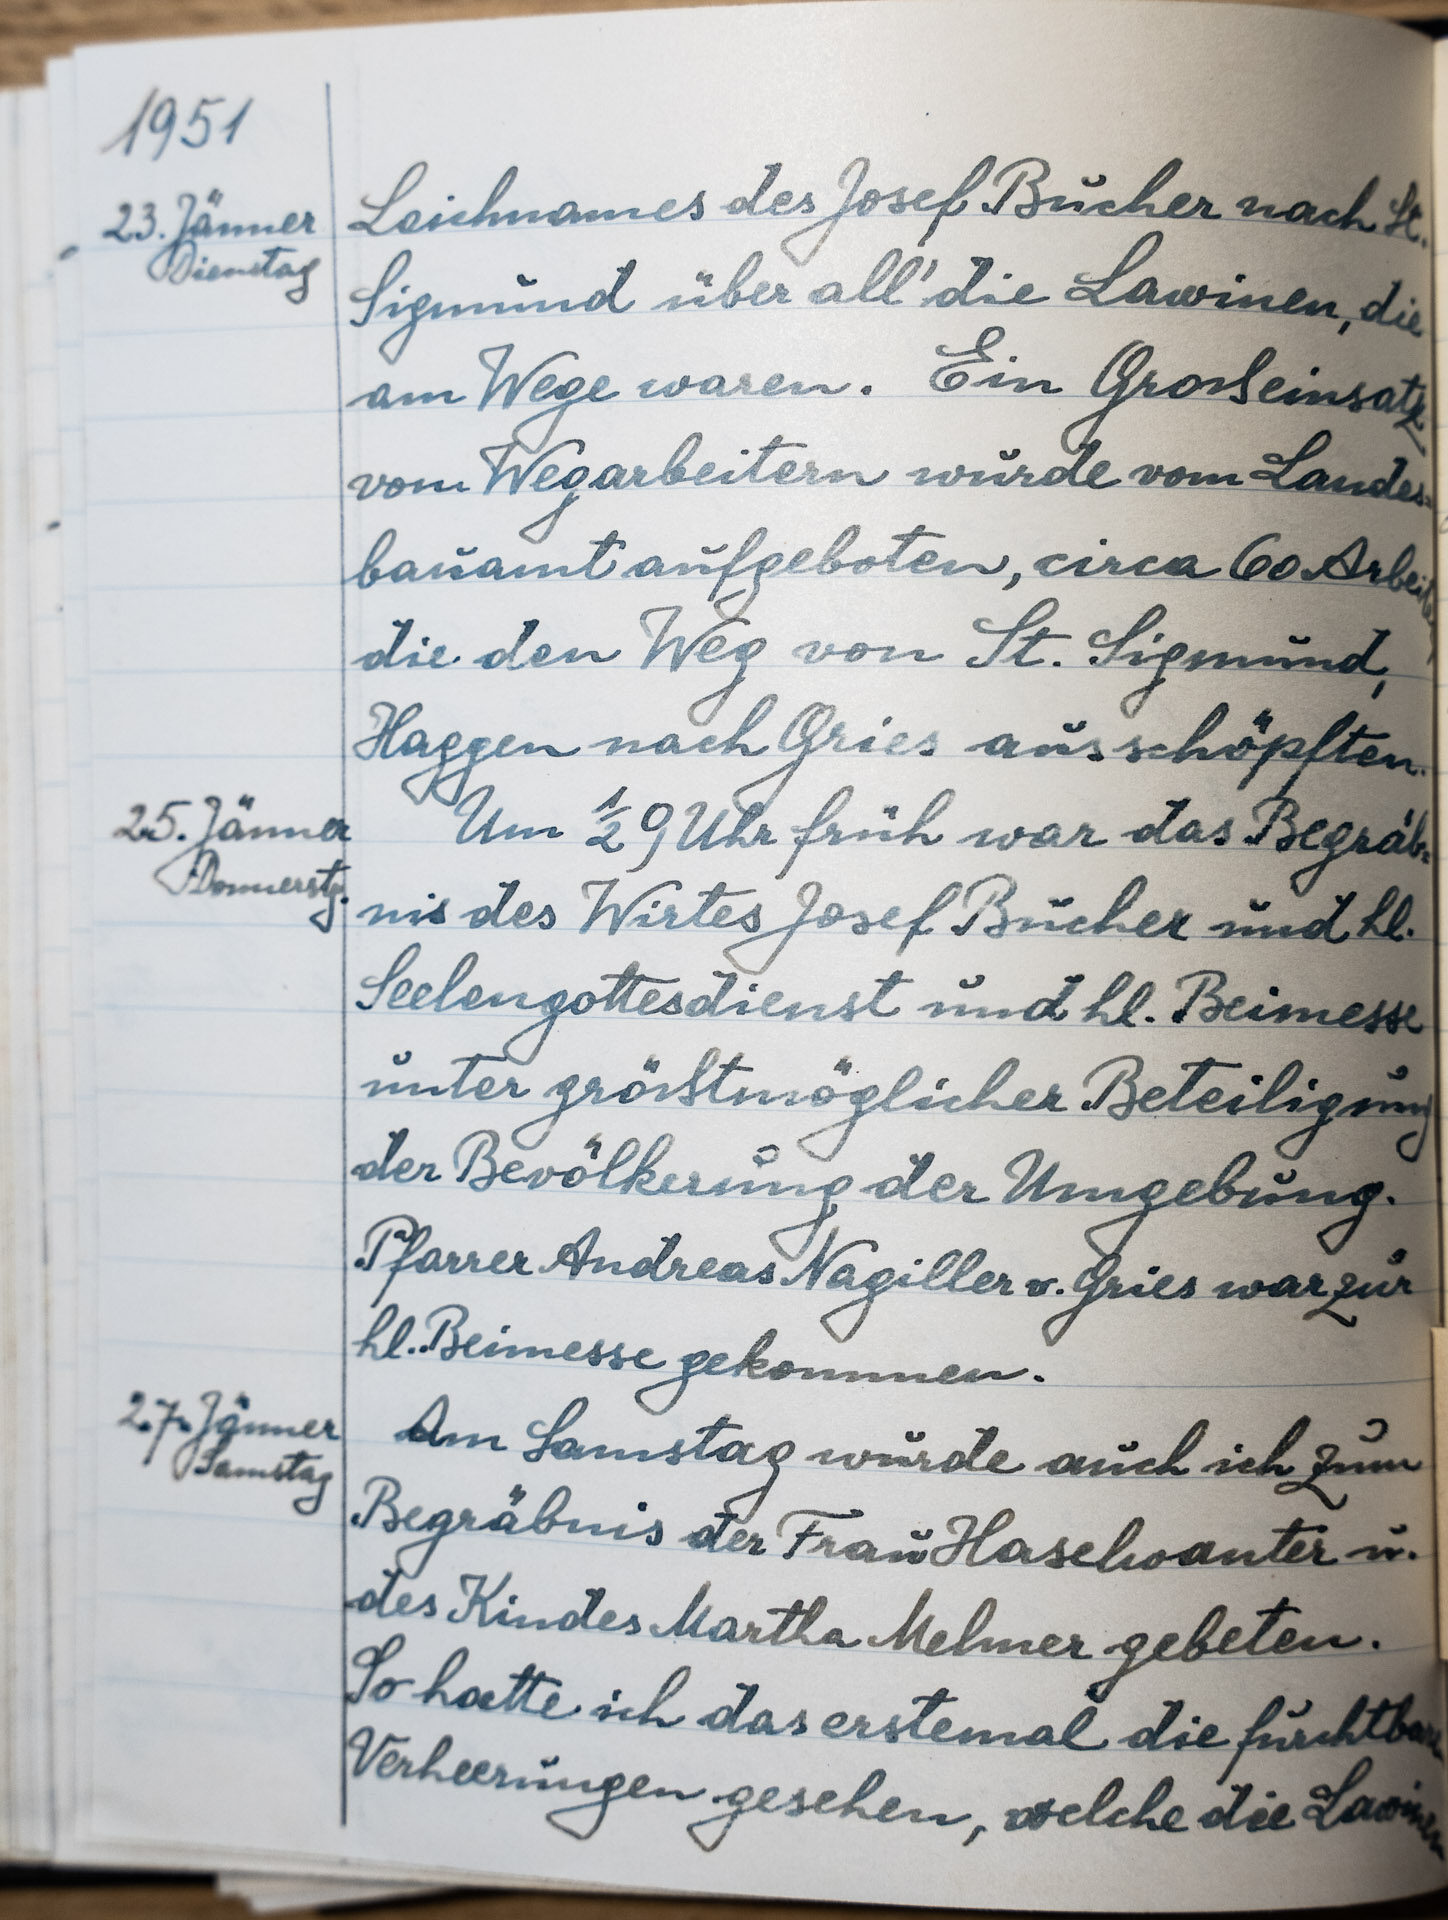 1951
23. Jänner
Dienstag
Leichnames des Josef Bucher nach St.
Sigmund über all' die Lawinen, die
am Wege waren. Ein Großeinsatz
vom Wegarbeitern wurde vom Landes=
bauamt aufgeboten, circa 60 Arbeiter
die den Weg von St. Sigmund,
Haggen nach Gries ausschöpften.
25. Jänner
Donnerstg.
Um ½ 9 Uhr früh war das Begräb=
nis des Wirtes Josef Bucher und hl.
Seelengottesdienst und hl. Beimesse
unter größtmöglicher Beteiligung
der Bevölkerung der Umgebung.
Pfarrer Andreas Nagiller v. Gries war zur
hl. Beimesse gekommen.
27. Jänner
Samstag
Am Samstag wurde auch ich zum
Begräbnis der Frau Haselwanter u.
des Kindes Martha Melmer gebeten.
So hatte ich das erstemal die furchtbare
Verheerungen gesehen, welche die Lawinen